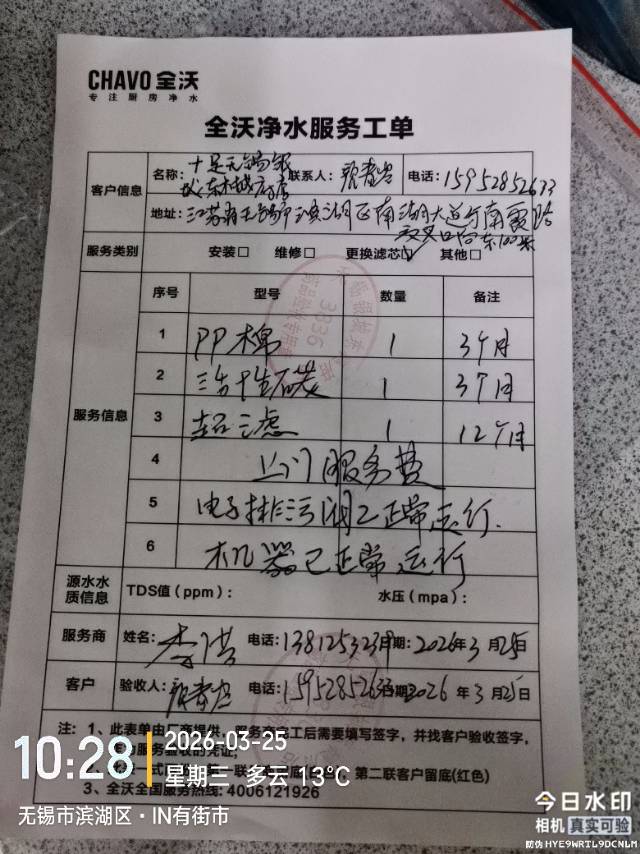 CHAVO 全沃
专注厨房净水
全沃净水服务工单
客户信息
名称：十足无锡银 联系人： 电话：15952852633
地址：江苏省无锡市滨湖区南湖大道与南霞路
交叉口向东100米
服务类别 安装□ 维修□ 更换滤芯☑ 其他□
服务信息
序号 型号 数量 备注
1 PP棉 1 3个月
2 活性碳 1 3个月
3 超滤 1 12个月
4 上门服务费
5 电子排污阀已正常运行.
6 机器已正常运行
源水水质信息 TDS值（ppm）： 水压（mpa）：
服务商 姓名：李洪 电话：1381253239 期：2026年3月25日
客户 验收人： 电话：15952852633 日期：2026年3月25日
注：1、此表单由厂商提供，服务 工后需要填写签字，并找客户验收签字，
服务验收的凭证；
一式 联 第二联客户留底（红色）
3、全沃全国服务热线：4006121926
3836
10:28
2026-03-25
星期三·多云 13℃
无锡市滨湖区·IN有街市
今日水印
相机 真实可验
防伪 HYE9WRTL9DCNLM